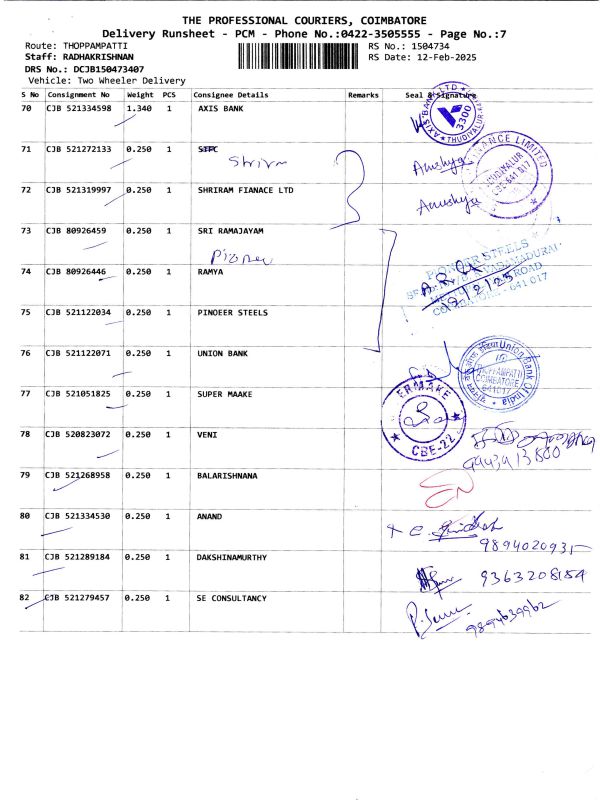 THE PROFESSIONAL COURIERS, COIMBATORE
Delivery Runsheet - PCM - Phone No.:0422-3505555 - Page No.:7
Route: THOPPAMPATTI RS No.: 1504734
Staff: RADHAKRISHNAN RS Date: 12-Feb-2025
DRS No.: DCJB150473407
Vehicle: Two Wheeler Delivery
S No Consignment No Weight PCS Consignee Details Remarks Seal & Signature
70 CJB 521334598 1.340 1 AXIS BANK
AXIS BANK LTD THUDIYALUR 3300
71 CJB 521272133 0.250 1 STPC
Shrirm Anushya
FINANCE LIMITED THUDIYALUR CBE-641 017
72 CJB 521319997 0.250 1 SHRIRAM FIANACE LTD
Anushya
73 CJB 80926459 0.250 1 SRI RAMAJAYAM
Pioneer
PIONEER STEELS
ROAD
641 017
12/2/25
74 CJB 80926446 0.250 1 RAMYA
75 CJB 521122034 0.250 1 PINOEER STEELS
76 CJB 521122071 0.250 1 UNION BANK
Union Bank Of India
COIMBATORE
641017
77 CJB 521051825 0.250 1 SUPER MAAKE
ERMAKE
CBE-22
78 CJB 520823072 0.250 1 VENI
9443913800
79 CJB 521268958 0.250 1 BALARISHNANA
80 CJB 521334530 0.250 1 ANAND
9894020935
81 CJB 521289184 0.250 1 DAKSHINAMURTHY
9363208184
82 CJB 521279457 0.250 1 SE CONSULTANCY
9894639962